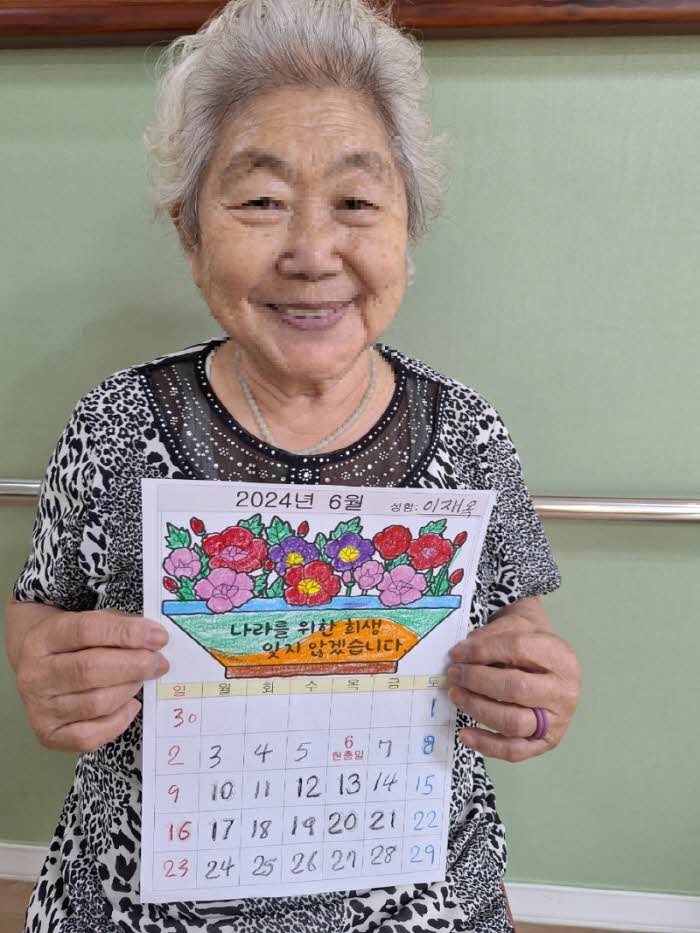 2024년 6월 성함: 이재옥
나라를 위한 희생
잊지 않겠습니다.
일 월 화 수 목 금 토
30 1
2 3 4 5 6 7 8
현충일
9 10 11 12 13 14 15
16 17 18 19 20 21 22
23 24 25 26 27 28 29